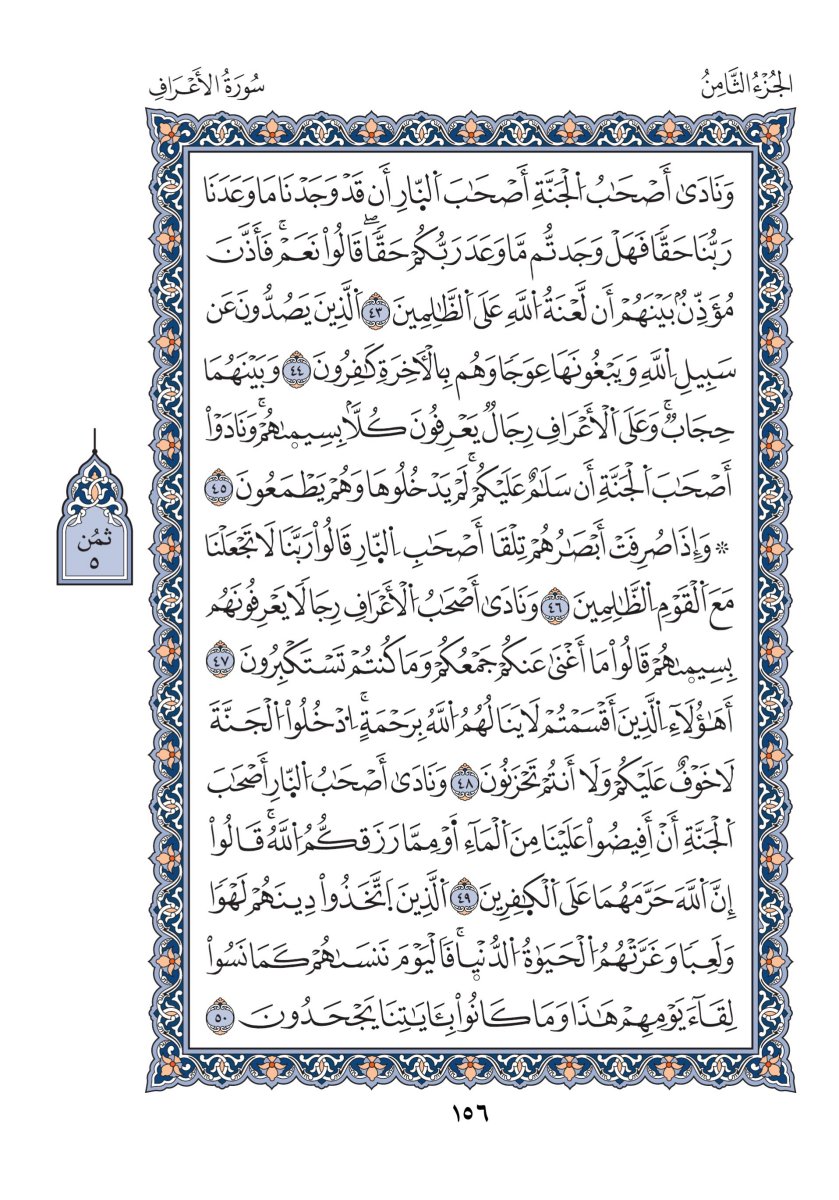 الجُزْءُ الثَّامِنُ
سُورَةُ الأَعْرَافِ
وَنَادَىٰ أَصْحَٰبُ اُ۬لْجَنَّةِ أَصْحَٰبَ اَ۬لنّ۪ارِ أَن قَدْ وَجَدْنَا مَا وَعَدَنَا
رَبُّنَا حَقّٗا فَهَلْ وَجَدتُّم مَّا وَعَدَ رَبُّكُمْ حَقّٗاۖ قَالُواْ نَعَمْۚ فَأَذَّنَ
مُؤَذِّنُۢ بَيْنَهُمْ أَن لَّعْنَةُ اُ۬للَّهِ عَلَى اَ۬لظَّٰلِمِينَ ٤٣ اَ۬لَّذِينَ يَصُدُّونَ عَن
سَبِيلِ اِ۬للَّهِ وَيَبْغُونَهَا عِوَجٗا وَهُم بِالْأٓخِرَةِ كَٰفِرُونَ ٤٤ وَبَيْنَهُمَا
حِجَابٞۚ وَعَلَى اَ۬لْأَعْرَافِ رِجَالٞ يَعْرِفُونَ كُلَّۢا بِسِيم۪ىٰهُمْۚ وَنَادَوْاْ
أَصْحَٰبَ اَ۬لْجَنَّةِ أَن سَلَٰمٌ عَلَيْكُمْۚ لَمْ يَدْخُلُوهَا وَهُمْ يَطْمَعُونَ ٤٥
۞ وَإِذَا صُرِفَتْ أَبْصَٰرُهُمْ تِلْقَا أَصْحَٰبِ اِ۬لنّ۪ارِ قَالُواْ رَبَّنَا لَا تَجْعَلْنَا
مَعَ اَ۬لْقَوْمِ اِ۬لظَّٰلِمِينَ ٤٦ وَنَادَىٰ أَصْحَٰبُ اُ۬لْأَعْرَافِ رِجَالٗا يَعْرِفُونَهُم
بِسِيم۪ىٰهُمْ قَالُواْ مَا أَغْنَىٰ عَنكُمْ جَمْعُكُمْ وَمَا كُنتُمْ تَسْتَكْبِرُونَ ٤٧
أَهَٰؤُلَآءِ اِ۬لَّذِينَ أَقْسَمْتُمْ لَا يَنَالُهُمُ اُ۬للَّهُ بِرَحْمَةٍۚ اِ۟دْخُلُواْ اُ۬لْجَنَّةَ
لَا خَوْفٌ عَلَيْكُمْ وَلَا أَنتُمْ تَحْزَنُونَ ٤٨ وَنَادَىٰ أَصْحَٰبُ اُ۬لنّ۪ارِ أَصْحَٰبَ
اَ۬لْجَنَّةِ أَنْ أَفِيضُواْ عَلَيْنَا مِنَ اَ۬لْمَآءِ اَ۬وْ مِمَّا رَزَقكُّمُ اُ۬للَّهُۚ قَالُواْ
إِنَّ اَ۬للَّهَ حَرَّمَهُمَا عَلَى اَ۬لْكٰ۪فِرِينَ ٤٩ اَ۬لَّذِينَ اَ۪تَّخَذُواْ دِينَهُمْ لَهْوٗا
وَلَعِبٗا وَغَرَّتْهُمُ اُ۬لْحَيَوٰةُ اُ۬لدُّنْي۪اۚ فَالْيَوْمَ نَنسَىٰهُمْ كَمَا نَسُواْ
لِقَآءَ يَوْمِهِمْ هَٰذَا وَمَا كَانُواْ بِـَٔايَٰتِنَا يَجْحَدُونَ ٥٠
ثمُن
٥
١٥٦